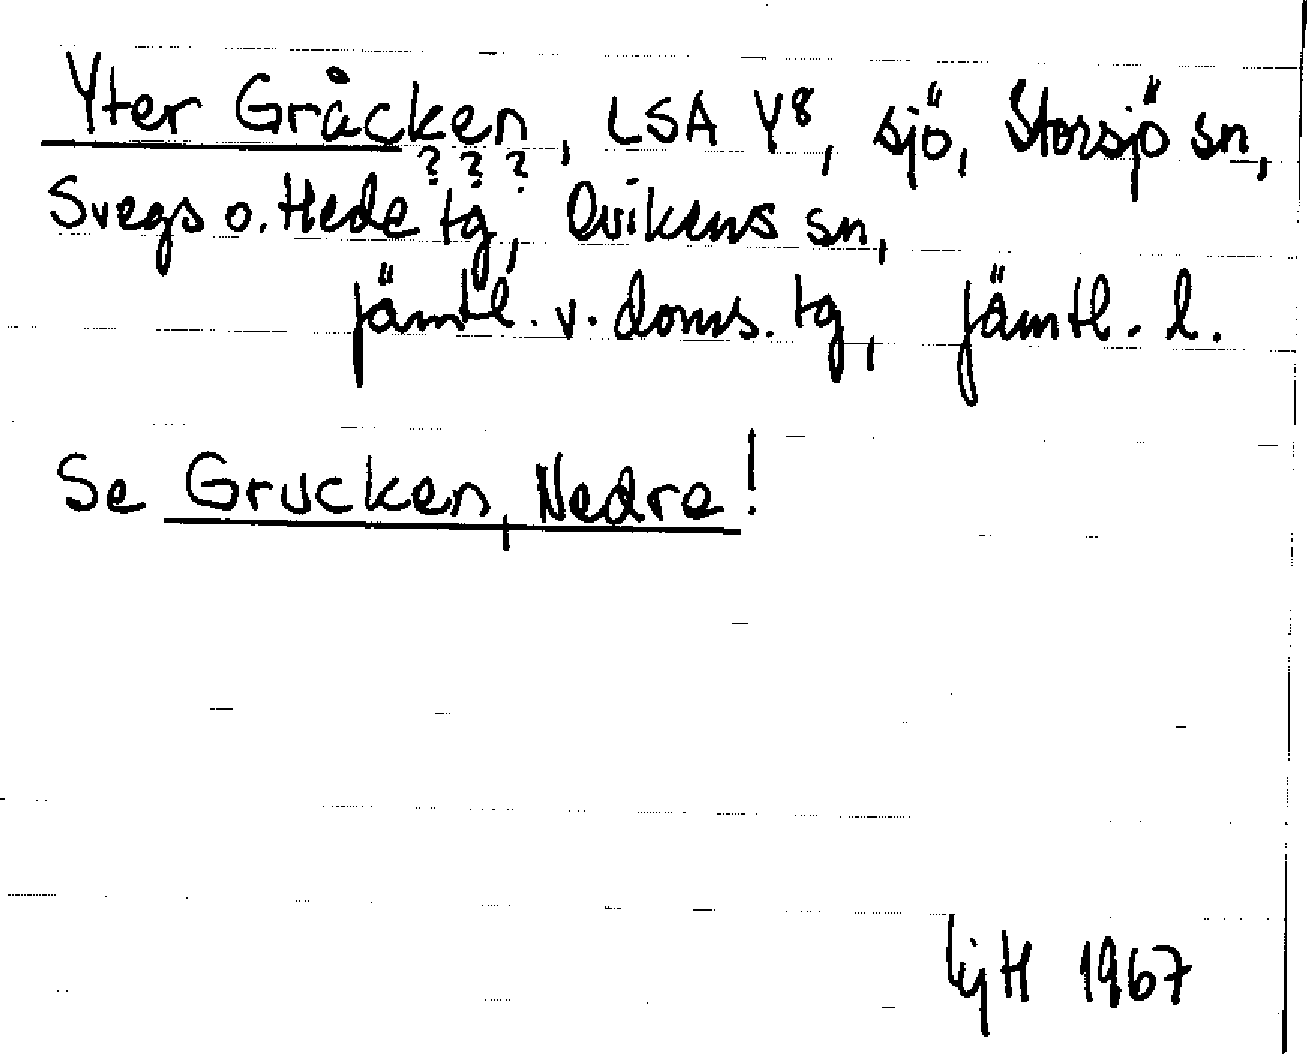 Yter Gråcken, LSA Y8, sjö, Storsjö sn,
? ? ?
Svegs o. Hede tg, Ovikens sn,
jämtl. v. doms. tg, jämtl. l.
Se Grucken, Nedre!
1967